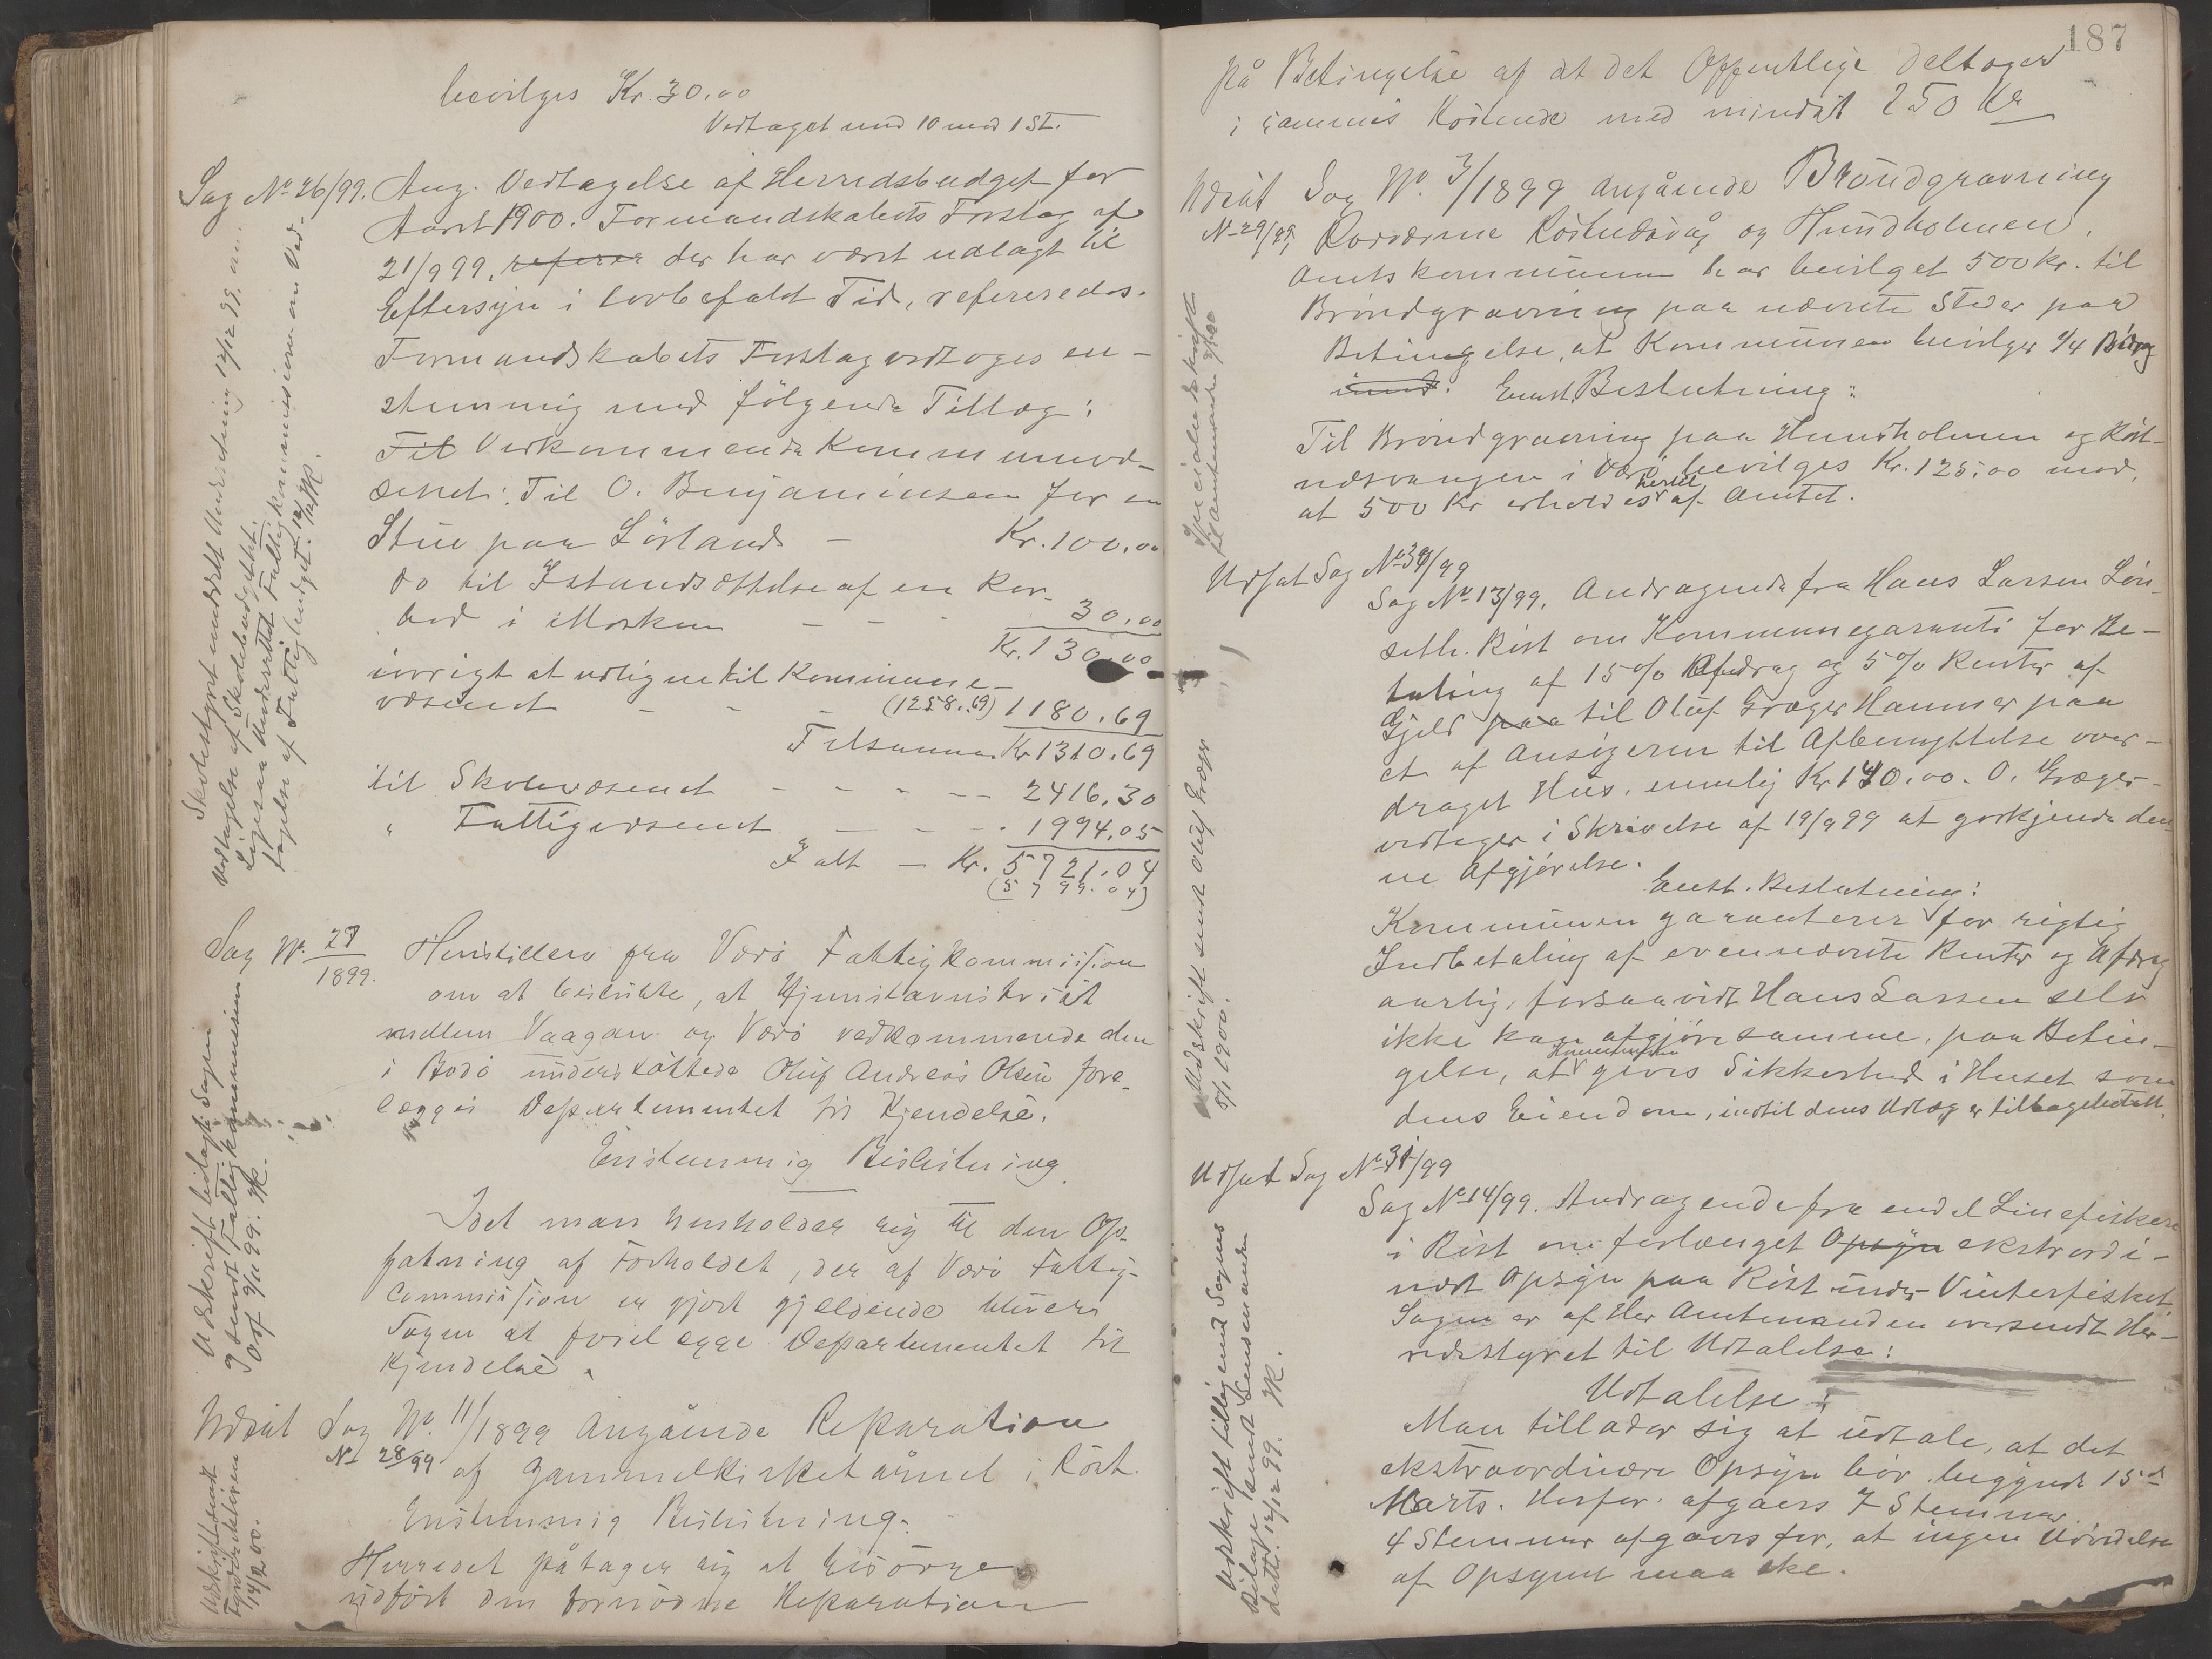 bevilges Kr. 30.00
Vedtaget med 10 mod 1 St.
Sag No 26/99. Ang. Vedtagelse af Herredsbudget for
Aaret 1900. Formandskabets Forslag af
21/9 99, referer der har været udlagt til
Eftersyn i lovbefalet Tid, refereredes.
Formandskabets Forslag vedtoges en-
stemmig med følgende Tillæg:
Til Vedkommende Kommunevæ-
senet: Til O. Benjaminsen for en
Stue paa Sörland - Kr. 100,00
do til Istandsættelse af en Ror-
bod i Mosken - - - 30,00
Kr. 130,00
iøvrigt at udligne til Kommune-
væsenet - - - (1258.69) 1180.69
Tilsammen Kr 1310.69
til Skolevæsenet - - - - - 2416,30
" Fattigvæsenet - - - 1994.05
I alt - Kr. 5721.04
(5799.04)
Skolestyret meddelt Underretning 12/12 99. om
Vedtagelse af Skolebudgettet.
Ligesaa underrettet Fattigkommissionen om Ved-
tagelse af Fattigbudget. 12/12 99.
Sag No. 27/1899. Henstillen fra Værö Fattigkommission
om at beslutte, at Hjemstavnstvist
mellem Vaagan og Værö vedkommende den
i Bodö understöttede Oluf Andreas Olsen fore-
lægges Departementet til Kjendelse.
Enstemmig Beslutning
Idet man henholder sig til den Op-
fatning af Forholdet, der af Værö Fattig-
Commission er gjort gjeldende bliver
Sagen at forelegge Departementet til
Kjendelse.
Udskrift bilagt Sagen
og sendt Fattigkommissionens
Ordf 9/11 99.
Udsat Sag No. 11/1899 Angående Reparation
No 28/99 af Gammelkirketårnet i Röst.
Enstemmig Beslutning:
Herredet påtager sig at besörge
udfört den fornödne Reparation
Udskrift sendt
14/2 00.
187
På Betingelse af at det Offentlige deltager
i sammes Kostende med mindst 250 Kr
Udsat Sag No. 3/1899 angående Bröndgravning
No 29/99, Rorværene Röstnæsvåg og Hundholmen.
Amtskommunen har bevilget 500 kr. til
Bröndgravning paa nævnte Steder paa
Betingelse, at Kommunen bevilger 1/4 Bidrag
imod. Enst. Beslutning:
Til Bröndgravning paa Hundholmen og Röst-
næsvaagen i Værö bevilges Kr. 125,00 mod,
at 500 Kr erholdes hertil af Amtet.
Udsat Sag No 30/99
Sag No 13/99. Andragende fra Hans Larsen Lön-
seth. Röst om Kommunegaranti for Be-
taling af 15 % Afdrag og 5 % Renter af
Gjeld paa til Oluf Græger Hammer paa
et af Ansögeren til Afbenyttelse over-
draget Hus, nemlig Kr 140.00. O. Græger
vedtager i Skrivelse af 19/9 99 at godkjende den-
ne Afgjörelse.
Enst. Beslutning:
Kommunen garanterer for rigtig
Indbetaling af ovennævnte Renter og Afdrag
aarlig, forsaavidt Hans Larsen selv
ikke kan afgjöre samme, paa Betin-
gelse, at Kommunen gives Sikkerhed i Huset som
dens Eiendom, indtil dens Udlæg er tilbagebetalt.
Udskrift sendt Oluf Græger
8/1 1900.
Udsat Sag No 31/99
Sag No 14/99. Andragende fra endel Linefiskere
i Röst om forlænget Opsyn ekstraordi-
nært Opsyn paa Röst under Vinterfisket.
Sagen er af Her Amtmanden oversendt Her-
redsstyret til Udtalelse:
Udtalelse:
Man tillader sig at udtale, at det
ekstraordinære Opsyn bör begynde 15de
Marts. Herfor afgaves 7 Stemmer.
4 Stemmer afgaves for, at ingen Udvidelse
af Opsynet maa ske.
Udskrift tilligemed Sagens
Bilage sendt Lensmanden
dette. 12/12 99.